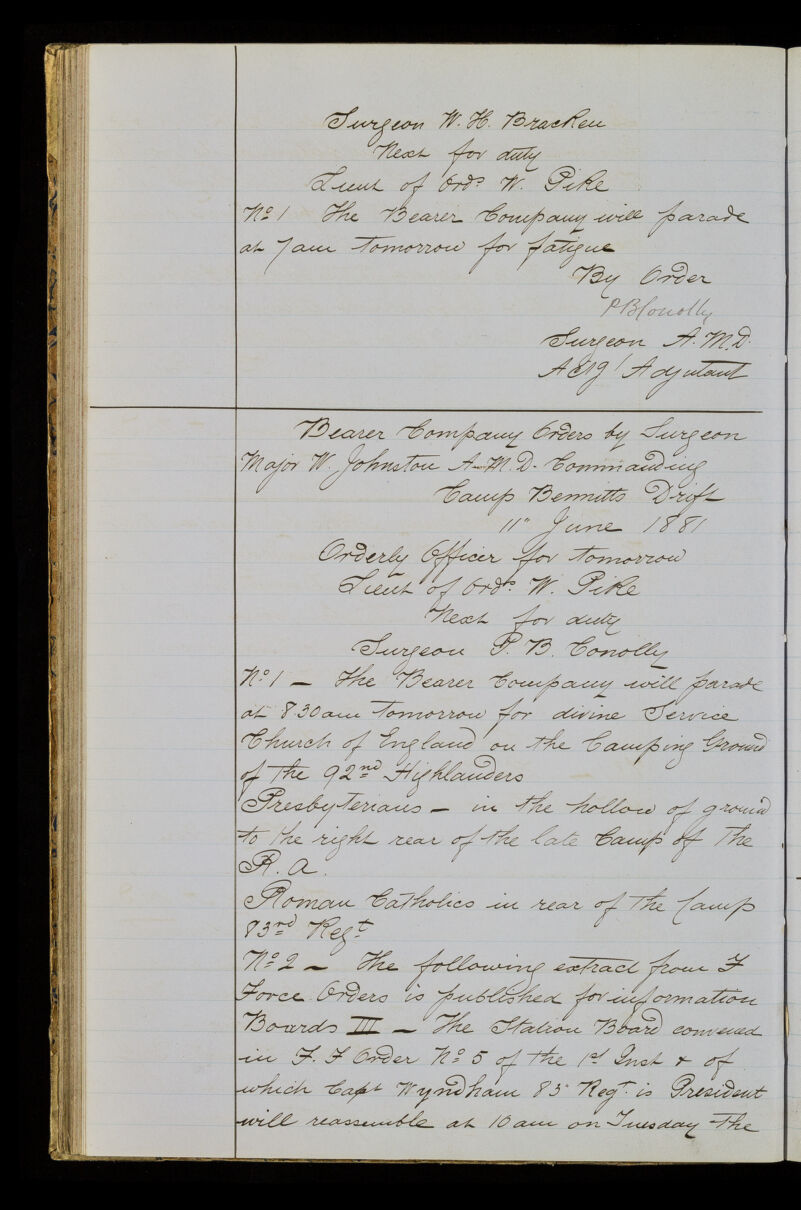 Surgeon W. H. Bracken
Next for duty
Lieut of Ords W. Pike
No 1 The Bearer Company will parade
at 7am tomorrow for fatigue
By Order
P B Conolly
Surgeon A. M. D.
Actg Adjutant
Bearer Company Orders by Surgeon
Major W. Johnston A. M. D. Commanding
Camp Bennitts Drift
11" June 1881
Orderly Officer for tomorrow
Lieut of Ords W. Pike
Next for duty
Surgeon P. B. Conolly
No 1 — The Bearer Company will parade
at 8 30 am tomorrow for divine Service
Church of England on the Camping Ground
of the 92nd Highlanders
Presbyterians — in the hollow of ground
to the right rear of the late Camp of the
R. A.
Roman Catholics in rear of the Camp
83rd Regt
No 2 — The following extract from F
Force Orders is published for information
Boards III — The Station Board convened
in F. F Order No 5 of the 1st Inst & of
which Capt Wyndham 85 Regt. is President
will reassemble at 10 am on Tuesday the